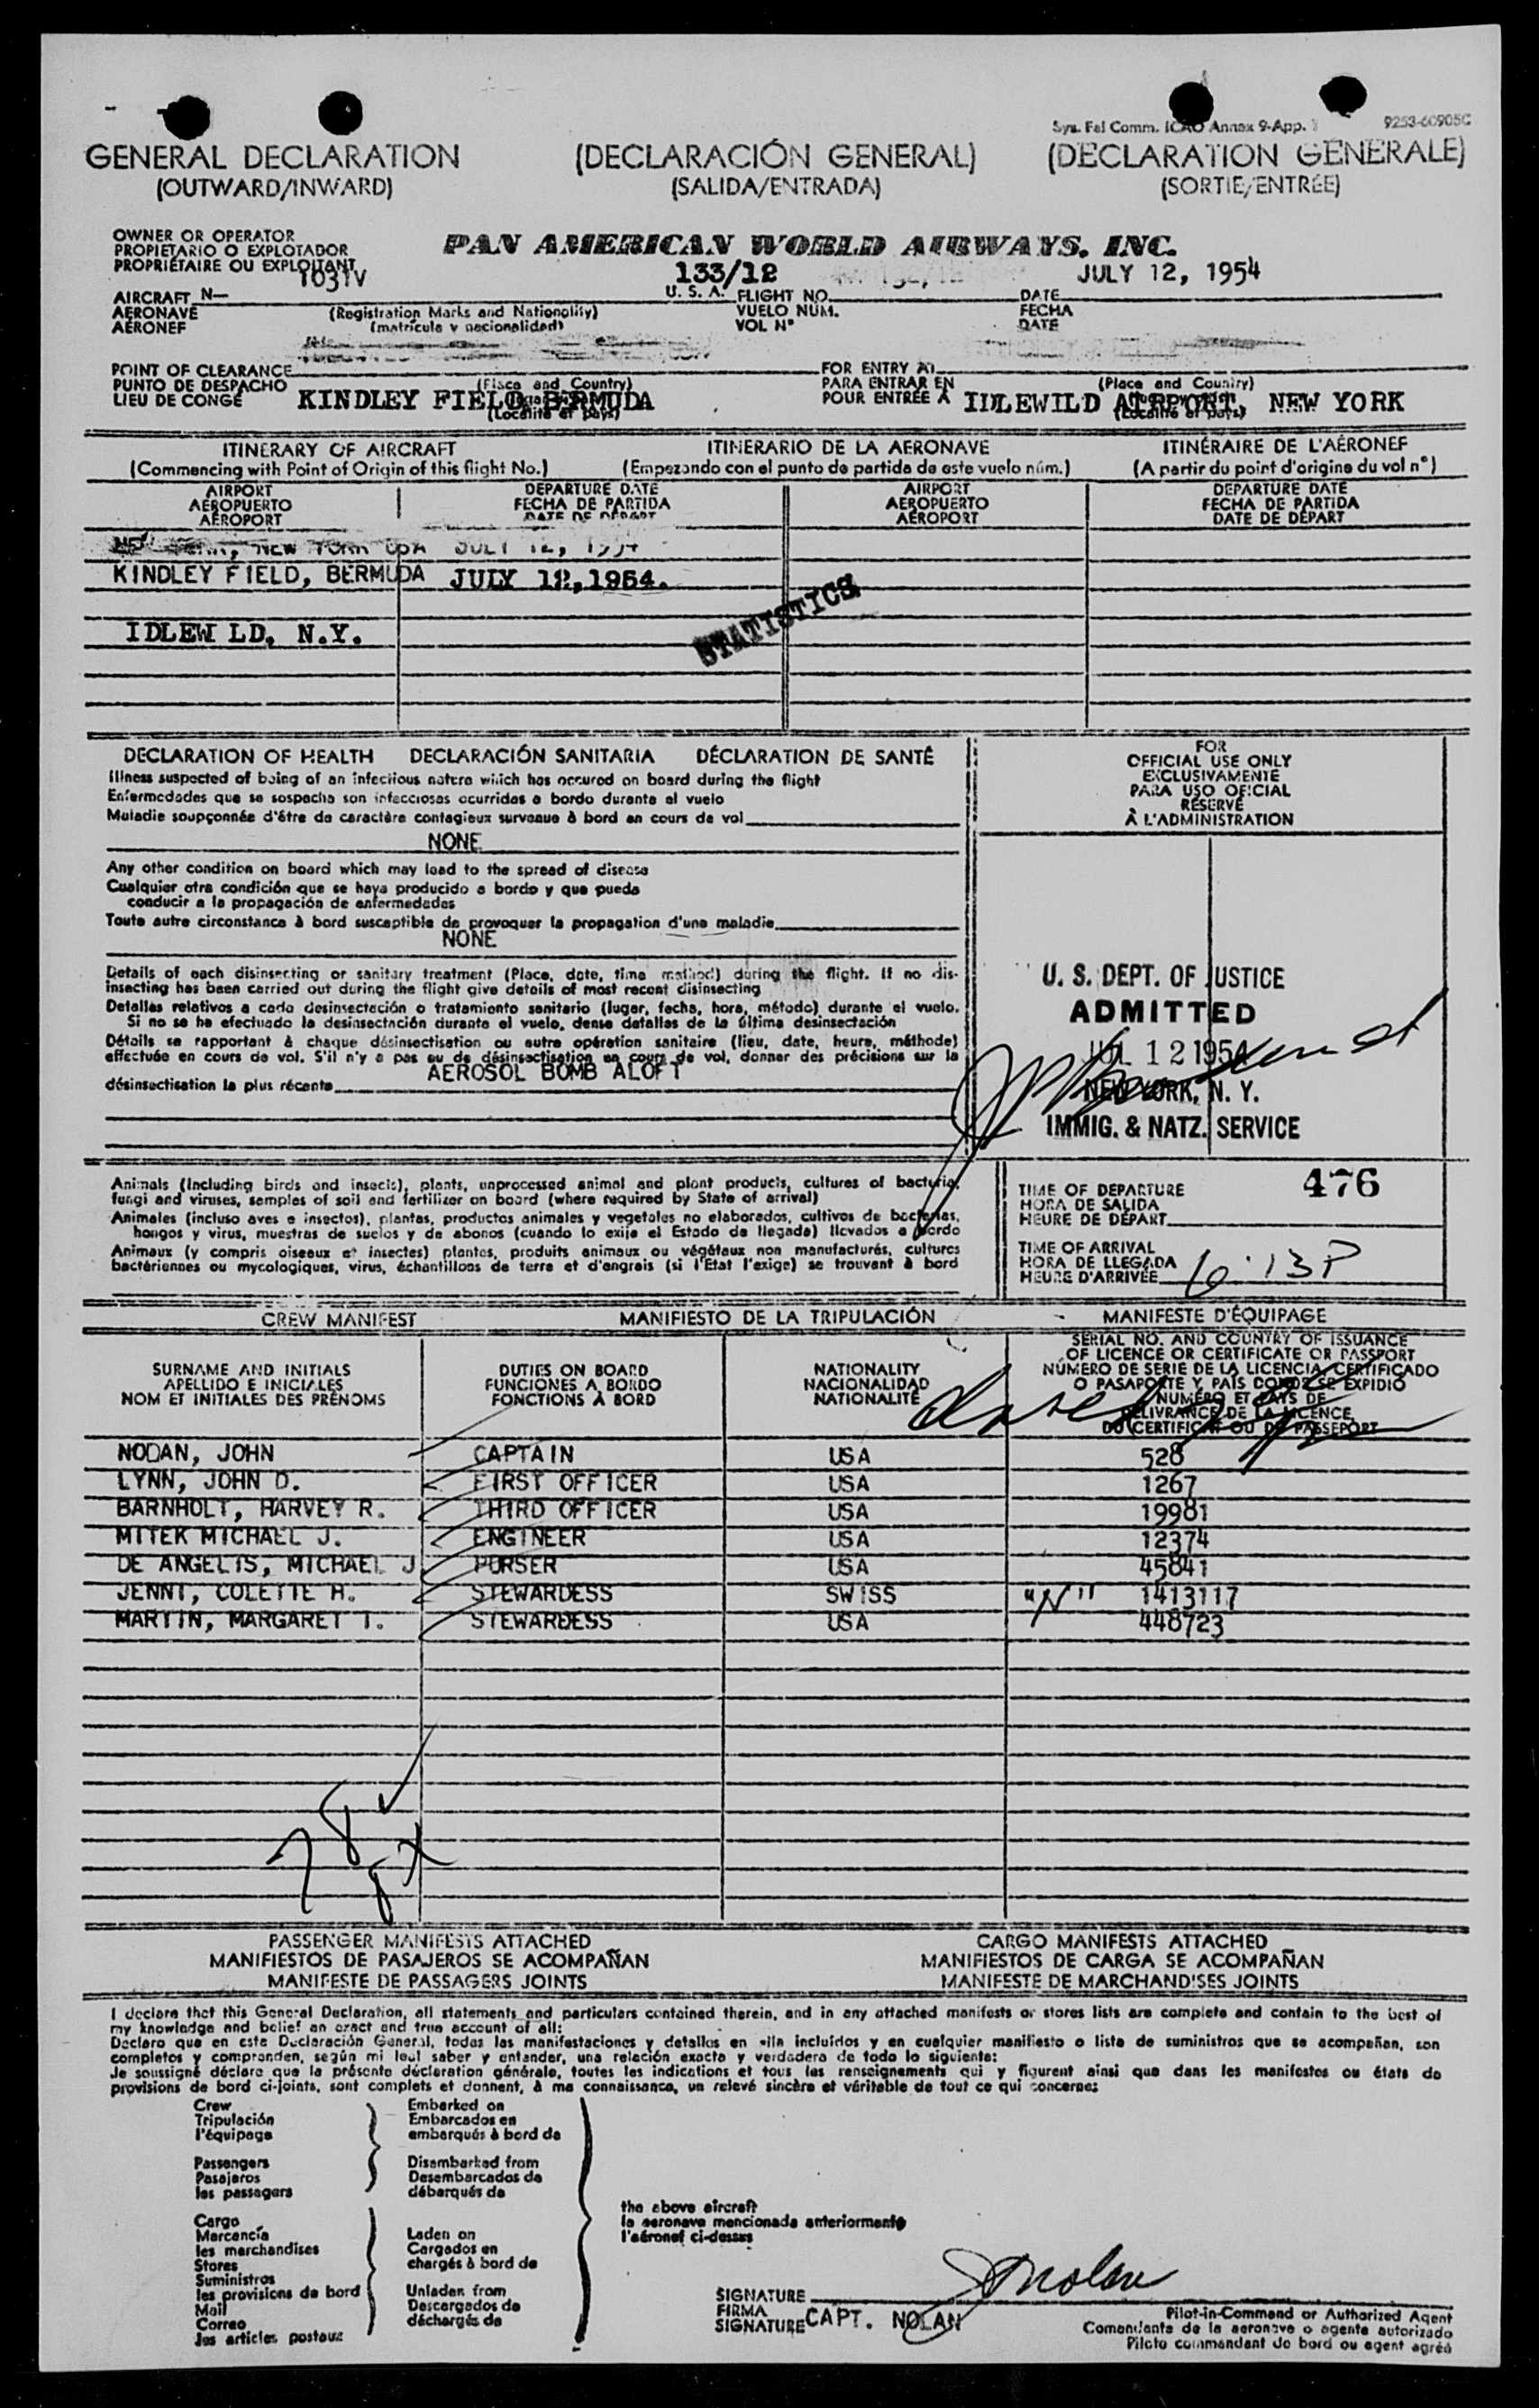 Sys. Fal Comm. ICAO Annex 9-App. 9253-60905C
GENERAL DECLARATION (DECLARACIÓN GENERAL) (DECLARATION GÉNÉRALE)
(OUTWARD/INWARD) (SALIDA/ENTRADA) (SORTIE/ENTRÉE)
OWNER OR OPERATOR
PROPIETARIO O EXPLOTADOR
PROPRIÉTAIRE OU EXPLOITANT
PAN AMERICAN WORLD AIRWAYS, INC.
1031V 133/12 JULY 12, 1954
AIRCRAFT N— U. S. A. FLIGHT NO. DATE
AERONAVE (Registration Marks and Nationality) VUELO NÚM. FECHA
AÉRONEF (matrícula y nacionalidad) VOL N° DATE
POINT OF CLEARANCE FOR ENTRY AT
PUNTO DE DESPACHO (Place and Country) PARA ENTRAR EN (Place and Country)
LIEU DE CONGÉ KINDLEY FIELD, BERMUDA POUR ENTRÉE À IDLEWILD AIRPORT, NEW YORK
(Localité et pays) (Localité et pays)
ITINERARY OF AIRCRAFT ITINERARIO DE LA AERONAVE ITINÉRAIRE DE L'AÉRONEF
(Commencing with Point of Origin of this flight No.) (Empezando con el punto de partida de este vuelo núm.) (A partir du point d'origine du vol n°)
AIRPORT DEPARTURE DATE AIRPORT DEPARTURE DATE
AEROPUERTO FECHA DE PARTIDA AEROPUERTO FECHA DE PARTIDA
AÉROPORT DATE DE DÉPART AÉROPORT DATE DE DÉPART
NEW YORK USA JULY 12, 1954
KINDLEY FIELD, BERMUDA JULY 12,1954.
STATISTICS
IDLEW LD, N.Y.
DECLARATION OF HEALTH DECLARACIÓN SANITARIA DÉCLARATION DE SANTÉ
Illness suspected of being of an infectious nature which has occured on board during the flight
Enfermedades que se sospecha son infecciosas ocurridas a bordo durante el vuelo
Maladie soupçonnée d'être de caractère contagieux survenue à bord en cours de vol
NONE
Any other condition on board which may lead to the spread of disease
Cualquier otra condición que se haya producido a bordo y que pueda
conducir a la propagación de enfermedades
Toute autre circonstance à bord susceptible de provoquer la propagation d'une maladie
NONE
Details of each disinsecting or sanitary treatment (Place, date, time method) during the flight. If no dis-
insecting has been carried out during the flight give details of most recent disinsecting
Detalles relativos a cada desinsectación o tratamiento sanitario (lugar, fecha, hora, método) durante el vuelo.
Si no se ha efectuado la desinsectación durante el vuelo, dense detalles de la última desinsectación
Détails se rapportant à chaque désinsectisation ou autre opération sanitaire (lieu, date, heure, méthode)
effectuée en cours de vol. S'il n'y a pas eu de désinsectisation en cours de vol, donner des précisions sur la
AEROSOL BOMB ALOFT
désinsectisation la plus récente
FOR
OFFICIAL USE ONLY
EXCLUSIVAMENTE
PARA USO OFICIAL
RÉSERVÉ
À L'ADMINISTRATION
U. S. DEPT. OF JUSTICE
ADMITTED
JUL 12 1954
NEW YORK, N. Y.
IMMIG. & NATZ. SERVICE
Animals (Including birds and insects), plants, unprocessed animal and plant products, cultures of bacteria,
fungi and viruses, samples of soil and fertilizer on board (where required by State of arrival)
Animales (incluso aves e insectos), plantas, productos animales y vegetales no elaborados, cultivos de bacterias,
hongos y virus, muestras de suelos y de abonos (cuando lo exija el Estado de llegada) llevados a bordo
Animaux (y compris oiseaux et insectes) plantes, produits animaux ou végétaux non manufacturés, cultures
bactériennes ou mycologiques, virus, échantillons de terre et d'engrais (si l'État l'exige) se trouvant à bord
476
TIME OF DEPARTURE
HORA DE SALIDA
HEURE DE DÉPART
TIME OF ARRIVAL
HORA DE LLEGADA
HEURE D'ARRIVÉE 6:13P
CREW MANIFEST MANIFIESTO DE LA TRIPULACIÓN MANIFESTE D'ÉQUIPAGE
SURNAME AND INITIALS
APELLIDO E INICIALES
NOM ET INITIALES DES PRÉNOMS
DUTIES ON BOARD
FUNCIONES A BORDO
FONCTIONS À BORD
NATIONALITY
NACIONALIDAD
NATIONALITÉ
SERIAL NO. AND COUNTRY OF ISSUANCE
OF LICENCE OR CERTIFICATE OR PASSPORT
NÚMERO DE SERIE DE LA LICENCIA, CERTIFICADO
O PASAPORTE Y PAÍS DONDE SE EXPIDIÓ
NUMÉRO ET PAYS DE
DÉLIVRANCE DE LA LICENCE
DU CERTIFICAT OU DU PASSEPORT
NODAN, JOHN CAPTAIN USA 528
LYNN, JOHN D. FIRST OFFICER USA 1267
BARNHOLT, HARVEY R. THIRD OFFICER USA 19981
MITEK MICHAEL J. ENGINEER USA 12374
DE ANGELIS, MICHAEL J PURSER USA 45841
JENNI, COLETTE H. STEWARDESS SWISS "N" 1413117
MARTIN, MARGARET T. STEWARDESS USA 448723
7 8
PASSENGER MANIFESTS ATTACHED CARGO MANIFESTS ATTACHED
MANIFIESTOS DE PASAJEROS SE ACOMPAÑAN MANIFIESTOS DE CARGA SE ACOMPAÑAN
MANIFESTE DE PASSAGERS JOINTS MANIFESTE DE MARCHANDISES JOINTS
I declare that this General Declaration, all statements and particulars contained therein, and in any attached manifests or stores lists are complete and contain to the best of
my knowledge and belief an exact and true account of all:
Declaro que en esta Declaración General, todas las manifestaciones y detalles en ella incluídos y en cualquier manifiesto o lista de suministros que se acompañan, son
completos y comprenden, según mi leal saber y entender, una relación exacta y verdadera de todo lo siguiente:
Je soussigné déclare que la présente déclaration générale, toutes les indications et tous les renseignements qui y figurent ainsi que dans les manifestes ou états de
provisions de bord ci-joints, sont complets et donnent, à ma connaissance, un relevé sincère et véritable de tout ce qui concerne:
Crew Embarked on
Tripulación Embarcados en
l'équipage embarqués à bord de
Passengers Disembarked from
Pasajeros Desembarcados de
les passagers débarqués de
the above aircraft
la aeronave mencionada anteriormente
l'aéronef ci-dessus
Cargo
Mercancía Laden on
les marchandises Cargados en
Stores chargés à bord de
Suministros
les provisions de bord Unladen from
Mail Descargados de
Correo déchargés de
les articles postaux
SIGNATURE J Nolan
FIRMA
SIGNATURE CAPT. NOLAN
Pilot-in-Command or Authorized Agent
Comandante de la aeronave o agente autorizado
Pilote commandant de bord ou agent agréé